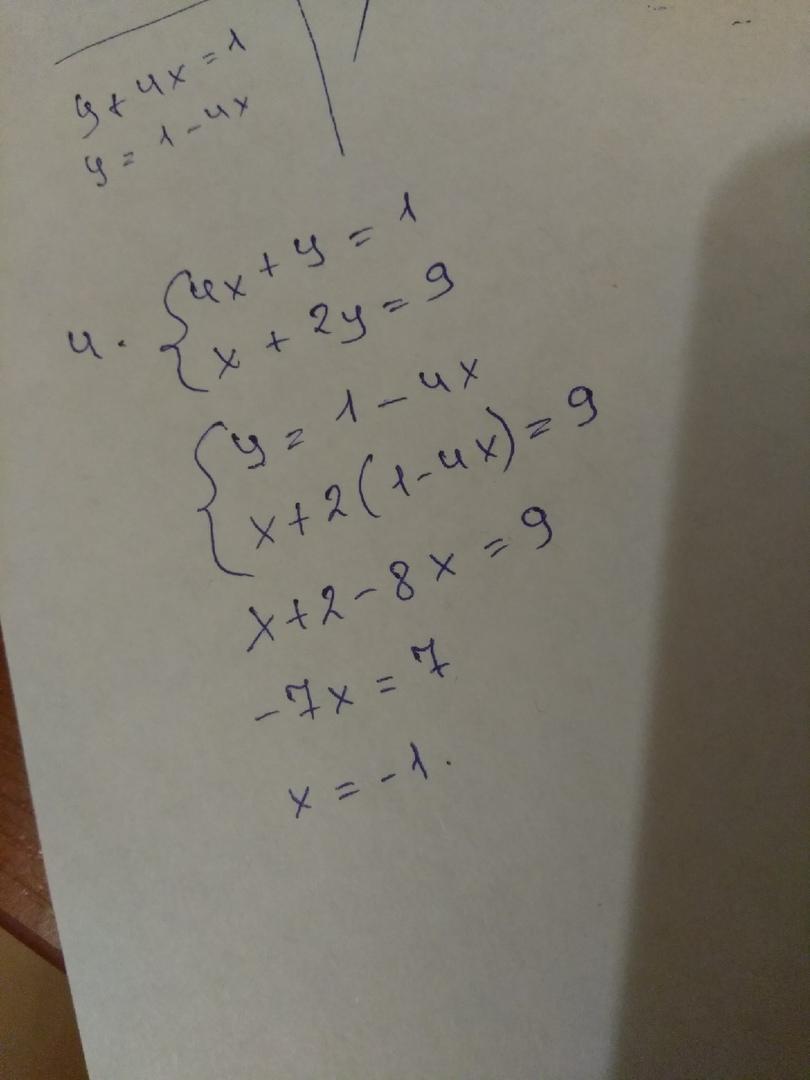 y + 4x = 1
y = 1 - 4x
4. { 4x + y = 1
x + 2y = 9
{ y = 1 - 4x
x + 2(1 - 4x) = 9
x + 2 - 8x = 9
-7x = 7
x = -1.